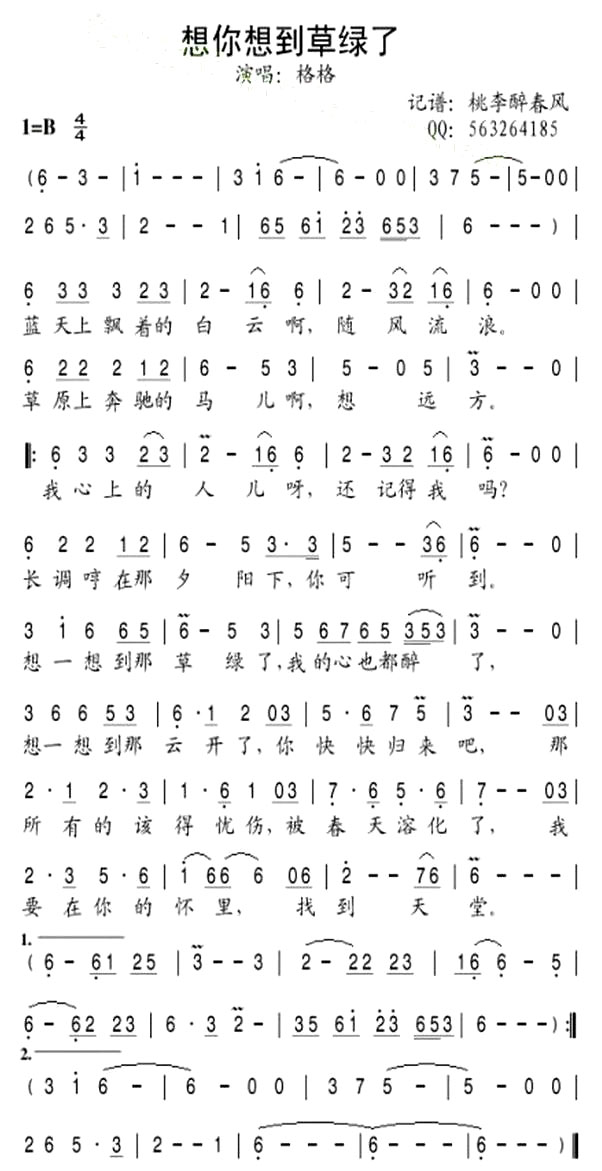 想你想到草绿了
演唱：格格
记谱：桃李醉春风
1=B 4/4
QQ：563264185
(6 - 3 - | i - - - | 3 i 6 - | 6 - 0 0 | 3 7 5 - | 5 - 0 0 |
2 6 5 · 3 | 2 - - 1 | 65 6i 23 653 | 6 - - - ) |
6 33 3 23 | 2 - 16 6 | 2 - 32 16 | 6 - 0 0 |
蓝天上飘着的白云啊，随风流浪。
6 22 2 12 | 6 - 5 3 | 5 - 0 5 | 3 - - 0 |
草原上奔驰的马儿啊，想远方。
‖: 6 3 3 23 | 2 - 16 6 | 2 - 32 16 | 6 - 0 0 |
我心上的人儿呀，还记得我吗？
6 2 2 12 | 6 - 5 3 · 3 | 5 - - 36 | 6 - - 0 |
长调哼在那夕阳下，你可听到。
3 i 6 65 | 6 - 5 3 | 5 67 65 353 | 3 - - 0 |
想一想到那草绿了，我的心也都醉了，
3 6 6 53 | 6 · 1 2 03 | 5 · 6 7 5 | 3 - - 03 |
想一想到那云开了，你快快归来吧，那
2 · 1 2 · 3 | 1 · 6 1 03 | 7 · 6 5 · 6 | 7 - - 03 |
所有的该得忧伤，被春天溶化了，我
2 · 3 5 · 6 | i 66 6 06 | 2 - - 76 | 6 - - - |
要在你的怀里，找到天堂。
1.
(6 - 61 25 | 3 - - 3 | 2 - 22 23 | 16 6 - 5 |
6 - 62 23 | 6 · 3 2 - | 35 6i 23 653 | 6 - - - ) :‖
2.
(3 i 6 - | 6 - 0 0 | 3 7 5 - | 5 - 0 0 |
2 6 5 · 3 | 2 - - 1 | 6 - - - | 6 - - - | 6 - - - ) ‖